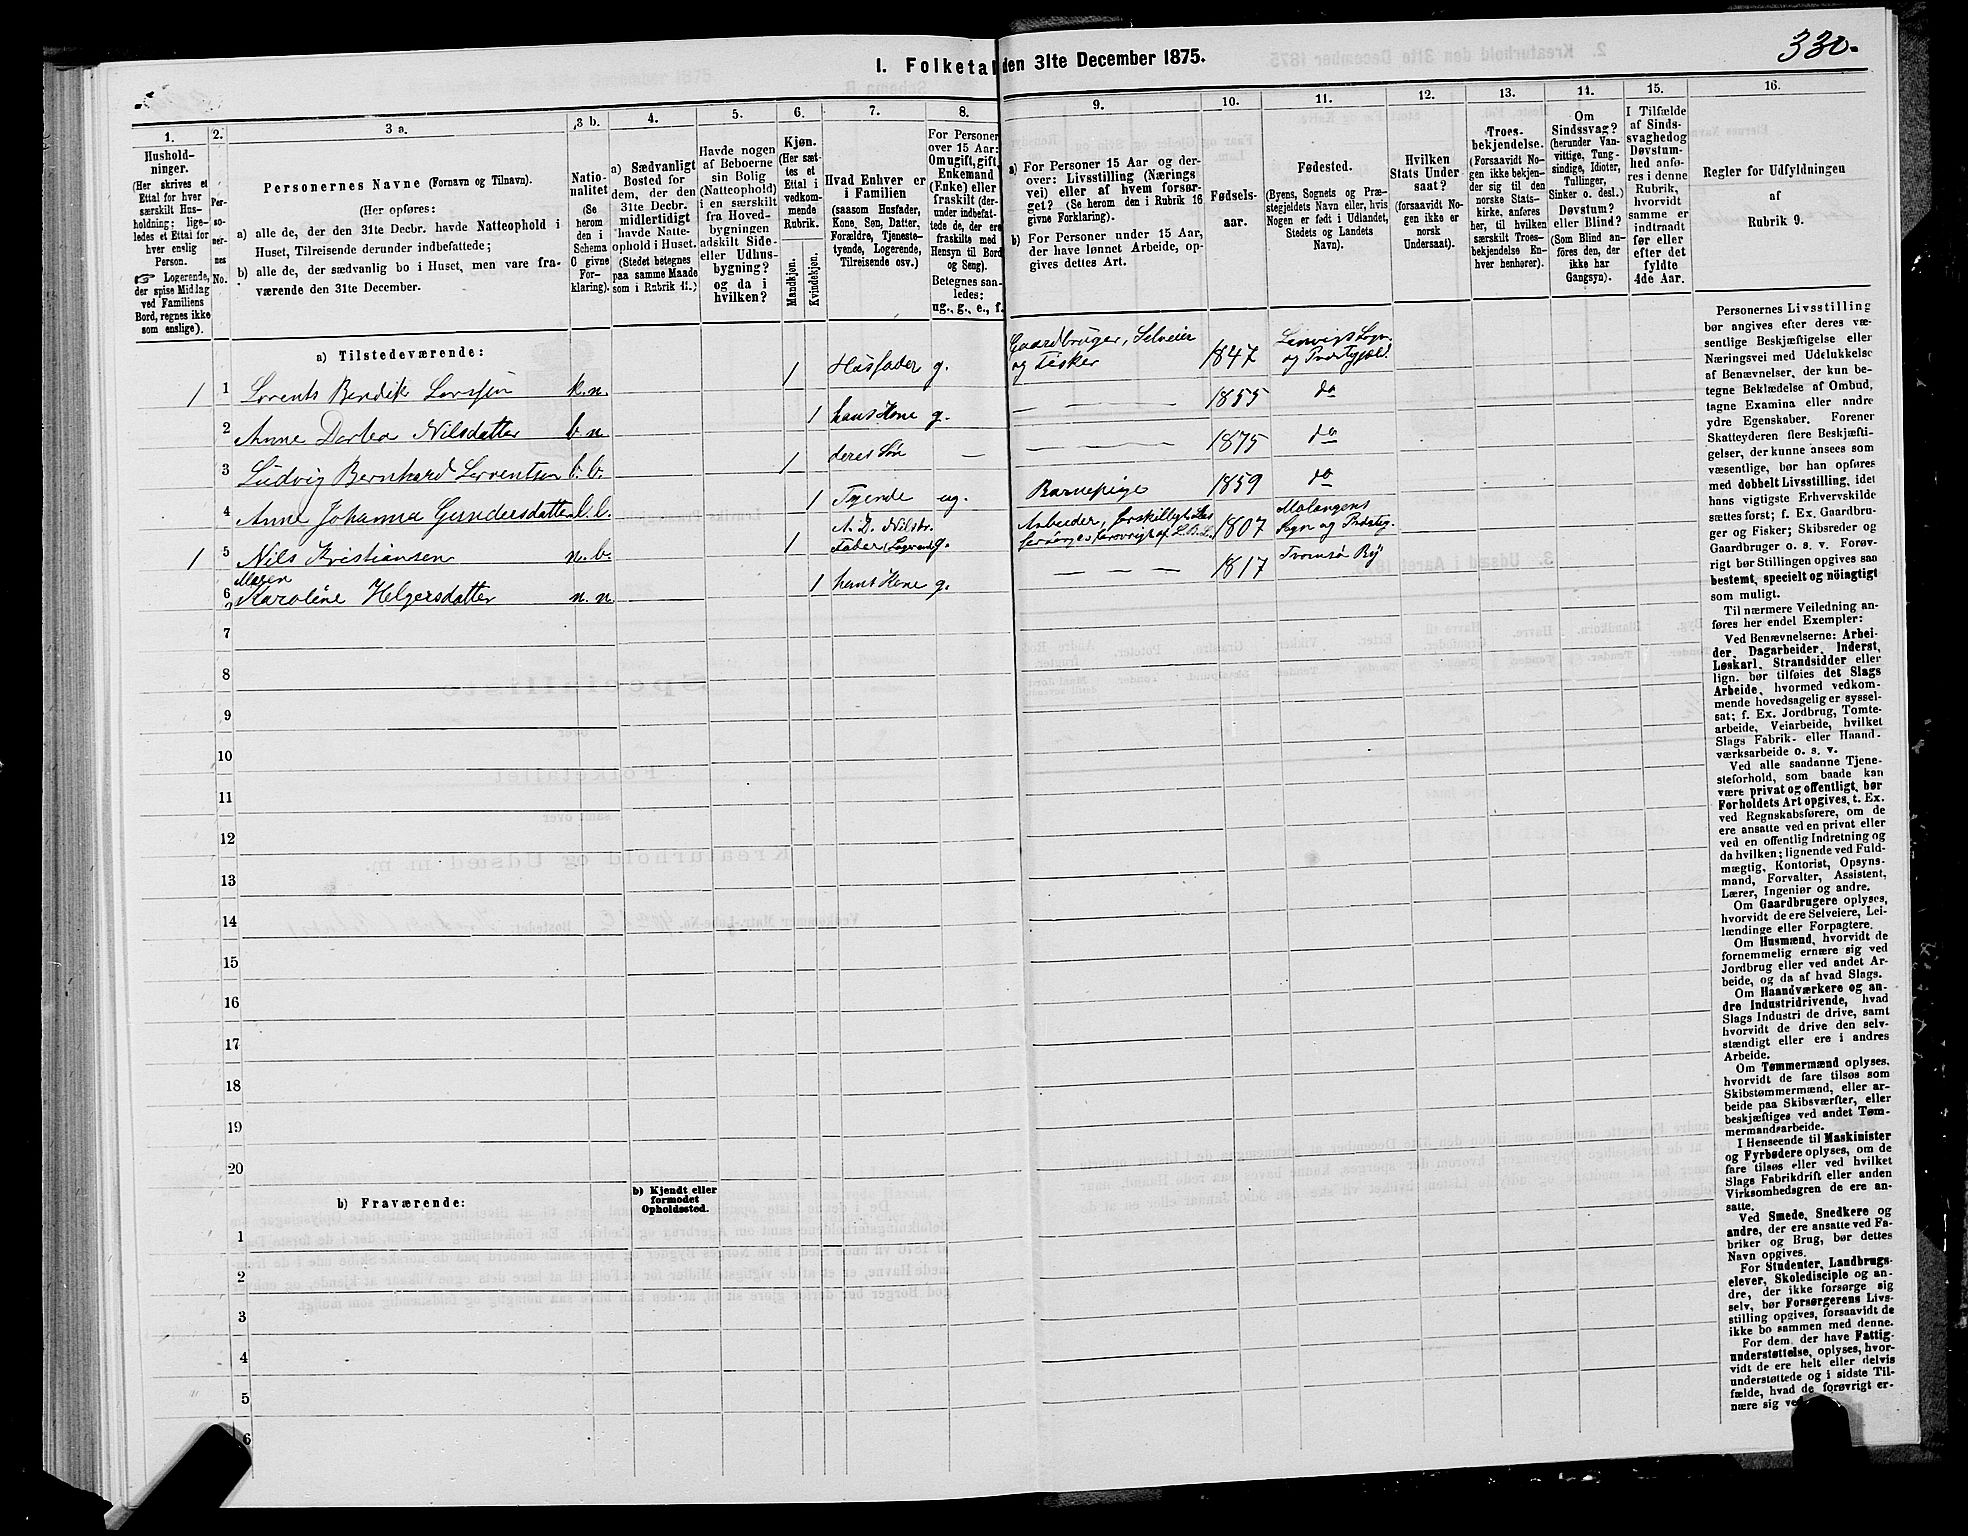 330.
I. Folketal den 31te December 1875.
1.
2.
3 a.
3 b.
4.
5.
6.
7.
8.
9.
10.
11.
12.
13.
14.
15.
16.
Hushold-
ninger.
(Her skrives et
Ettal for hver
særskilt Hus-
holdning; lige-
ledes et Ettal for
hver enslig
Person.
☞ Logerende,
der spise Middag
ved Familiens
Bord, regnes ikke
som enslige).
Per-
so-
ner-
nes
No.
Personernes Navne (Fornavn og Tilnavn).
(Her opføres:
a) alle de, der den 31te Decbr. havde Natteophold i
Huset, Tilreisende derunder indbefattede;
b) alle de, der sædvanlig bo i Huset, men vare fra-
værende den 31te December.
Natio-
nalitet
(Se
herom
den i
Schema
C givne
For-
klaring).
a) Sædvanligt
Bosted for
dem, der den
31te Decbr.
midlertidigt
havde Natte-
ophold i Huset.
(Stedet betegnes
paa samme Maade
som i Rubrik 11.)
Havde nogen
af Beboerne
sin Bolig
(Natteophold)
i en særskilt
fra Hoved-
bygningen
adskilt Side-
eller Udhus-
bygning?
og da i
hvilken?
Kjøn.
(Her sæt-
tes et
Ettal i
vedkom-
mende
Rubrik.
Mandkjøn.
Kvindekjøn.
Hvad Enhver er
i Familien
(saasom Husfader,
Kone, Søn, Datter,
Forældre, Tjeneste-
tyende, Logerende,
Tilreisende osv.).
For Personer
over 15 Aar:
Om ugift, gift,
Enkemand
(Enke) eller
fraskilt (der-
under indbefat-
tede de, der ere
fraskilte med
Hensyn til Bord
og Seng).
Betegnes saa-
ledes:
ug., g., e., f.
a) For Personer 15 Aar og der-
over: Livsstilling (Nærings-
vei) eller af hvem forsør-
get? (Se herom den i Rubrik 16
givne Forklaring).
b) For Personer under 15 Aar,
der have lønnet Arbeide, op-
gives dettes Art.
Fødsels-
aar.
Fødested.
(Byens, Sognets og Præ-
stegjeldets Navn eller, hvis
Nogen er født i Udlandet,
Stedets og Landets
Navn).
Hvilken
Stats Under
saat?
(forsaavidt No-
gen ikke er
norsk
Undersaat).
Troes-
bekjendelse.
(Forsaavidt No-
gen ikke bekjen-
der sig til den
norske Stats-
kirke, anføres
her, til hvilken
særskilt Troes-
bekjendelse En-
hver henhører).
Om
Sindssvag?
(herunder Van-
vittige, Tung-
sindige, Idioter,
Tullinger,
Sinker o. desl.).
Døvstum?
eller Blind?
(Som Blind an-
føres den, der
ikke har
Gangsyn).
I Tilfælde
af Sinds-
svaghed og
Døvstum-
hed anfø-
res i denne
Rubrik,
hvorvidt
samme er
indtraadt
før eller
efter det
fyldte
4de Aar.
Regler for Udfyldningen
af
Rubrik 9.
a) Tilstedeværende:
1 1 Lorents Bendik k. n. 1 Husfader g. Gaardbruger, Selveier
og Fisker 1847 Lenvigs Sogn
og Præstgjæld.
2 Anne Dortea Nilsdatter b. n. 1 hans Kone g. — — — 1855 do
3 Ludvig Bernhard Lorentsen b. b. 1 deres Søn — — — — 1875 do
4 Anne Johanna Gundersdatter l. l. 1 Tyende ug. Barnepige 1859 do
1 5 Nils Kristiansen n. b. 1 A. D. Nilsdr.
Fader, g. Arbeider, 1807 Malangens
Sogn og
6 Maren
Karoline Helgersdatter n. n. 1 hans Kone g. — — — 1817 Tromsø By
7
8
9
10
11
12
13
14
15
16
17
18
19
20
b) Fraværende:
b) Kjendt eller
formodet
Opholdssted.
1
2
3
4
5
6
Personernes Livsstilling
bør angives efter deres væ-
sentlige Beskjæftigelse eller
Næringsvei med Udelukkelse
af Benævnelser, der kun be-
tegne Beklædelse af Ombud,
tagne Examina eller andre
ydre Egenskaber. Forener
Skatteyderen flere Beskjæfti-
gelser, der kunne ansees som
væsentlige, bør han opføres
med dobbelt Livsstilling, idet
hans vigtigste Erhvervskilde
sættes først; f. Ex. Gaardbru-
ger og Fisker; Skibsreder og
Gaardbruger o. s. v. Forøv-
rigt bør Stillingen opgives saa
bestemt, specielt og nöiagtigt
som muligt.
Til nærmere Veiledning an-
føres her endel Exempler:
Ved Benævnelserne: Arbei-
der, Dagarbeider, Inderst,
Løskarl, Strandsidder eller
lign. bør tilføies det Slags
Arbeide, hvormed vedkom-
mende hovedsagelig er syssel-
sat; f. Ex. Jordbrug, Tomte-
arbeide, Veiarbeide, hvilket
Slags Fabrik- eller Haand-
værksarbeide o. s. v.
Ved alle saadanne Tjene-
steforhold, som baade kan
være privat og offentligt, bør
Forholdets Art opgives, t. Ex.
ved Regnskabsførere, om de
ere ansatte ved en privat eller
ved en offentlig Indretning og
da hvilken; lignende ved Fuld-
mægtig, Kontorist, Opsyns-
mand, Forvalter, Assistent,
Lærer, Ingeniør og andre.
Om Gaardbrugere oplyses,
hvorvidt de ere Selveiere, Lei-
lændinge eller Forpagtere.
Om Husmænd, hvorvidt de
fornemmelig ernære sig ved
Jordbrug eller ved andet Ar-
beide, og da af hvad Slags.
Om Haandværkere og an-
dre Industridrivende, hvad
Slags Industri de drive, samt
hvorvidt de drive den selv-
stændigt eller ere i andres
Arbeide.
Om Tømmermænd oplyses,
hvorvidt de fare tilsøs som
Skibstømmermænd, eller ar-
beide paa Skibsværfter, eller
beskjæftiges ved andet Tøm-
mermandsarbeide.
I Henseende til Maskinister
og Fyrbødere oplyses, om de
fare tilsøs eller ved hvilket
Slags Fabrikdrift eller anden
Virksomhedsgren de ere an-
satte.
Ved Smede, Snedkere og
andre, der ere ansatte ved Fa-
briker og Brug, bør dettes
Navn opgives.
For Studenter, Landbrugs-
elever, Skoledisciple og an-
dre, der ikke forsørge sig
selv, bør Forsørgerens Livs-
stilling opgives, forsaavidt de
ikke bo sammen med denne.
For dem, der have Fattig-
understøttelse, oplyses, hvor-
vidt de ere helt eller delvis
understøttede og i sidste Til-
fælde, hvad de forøvrigt er-
nære sig ved.